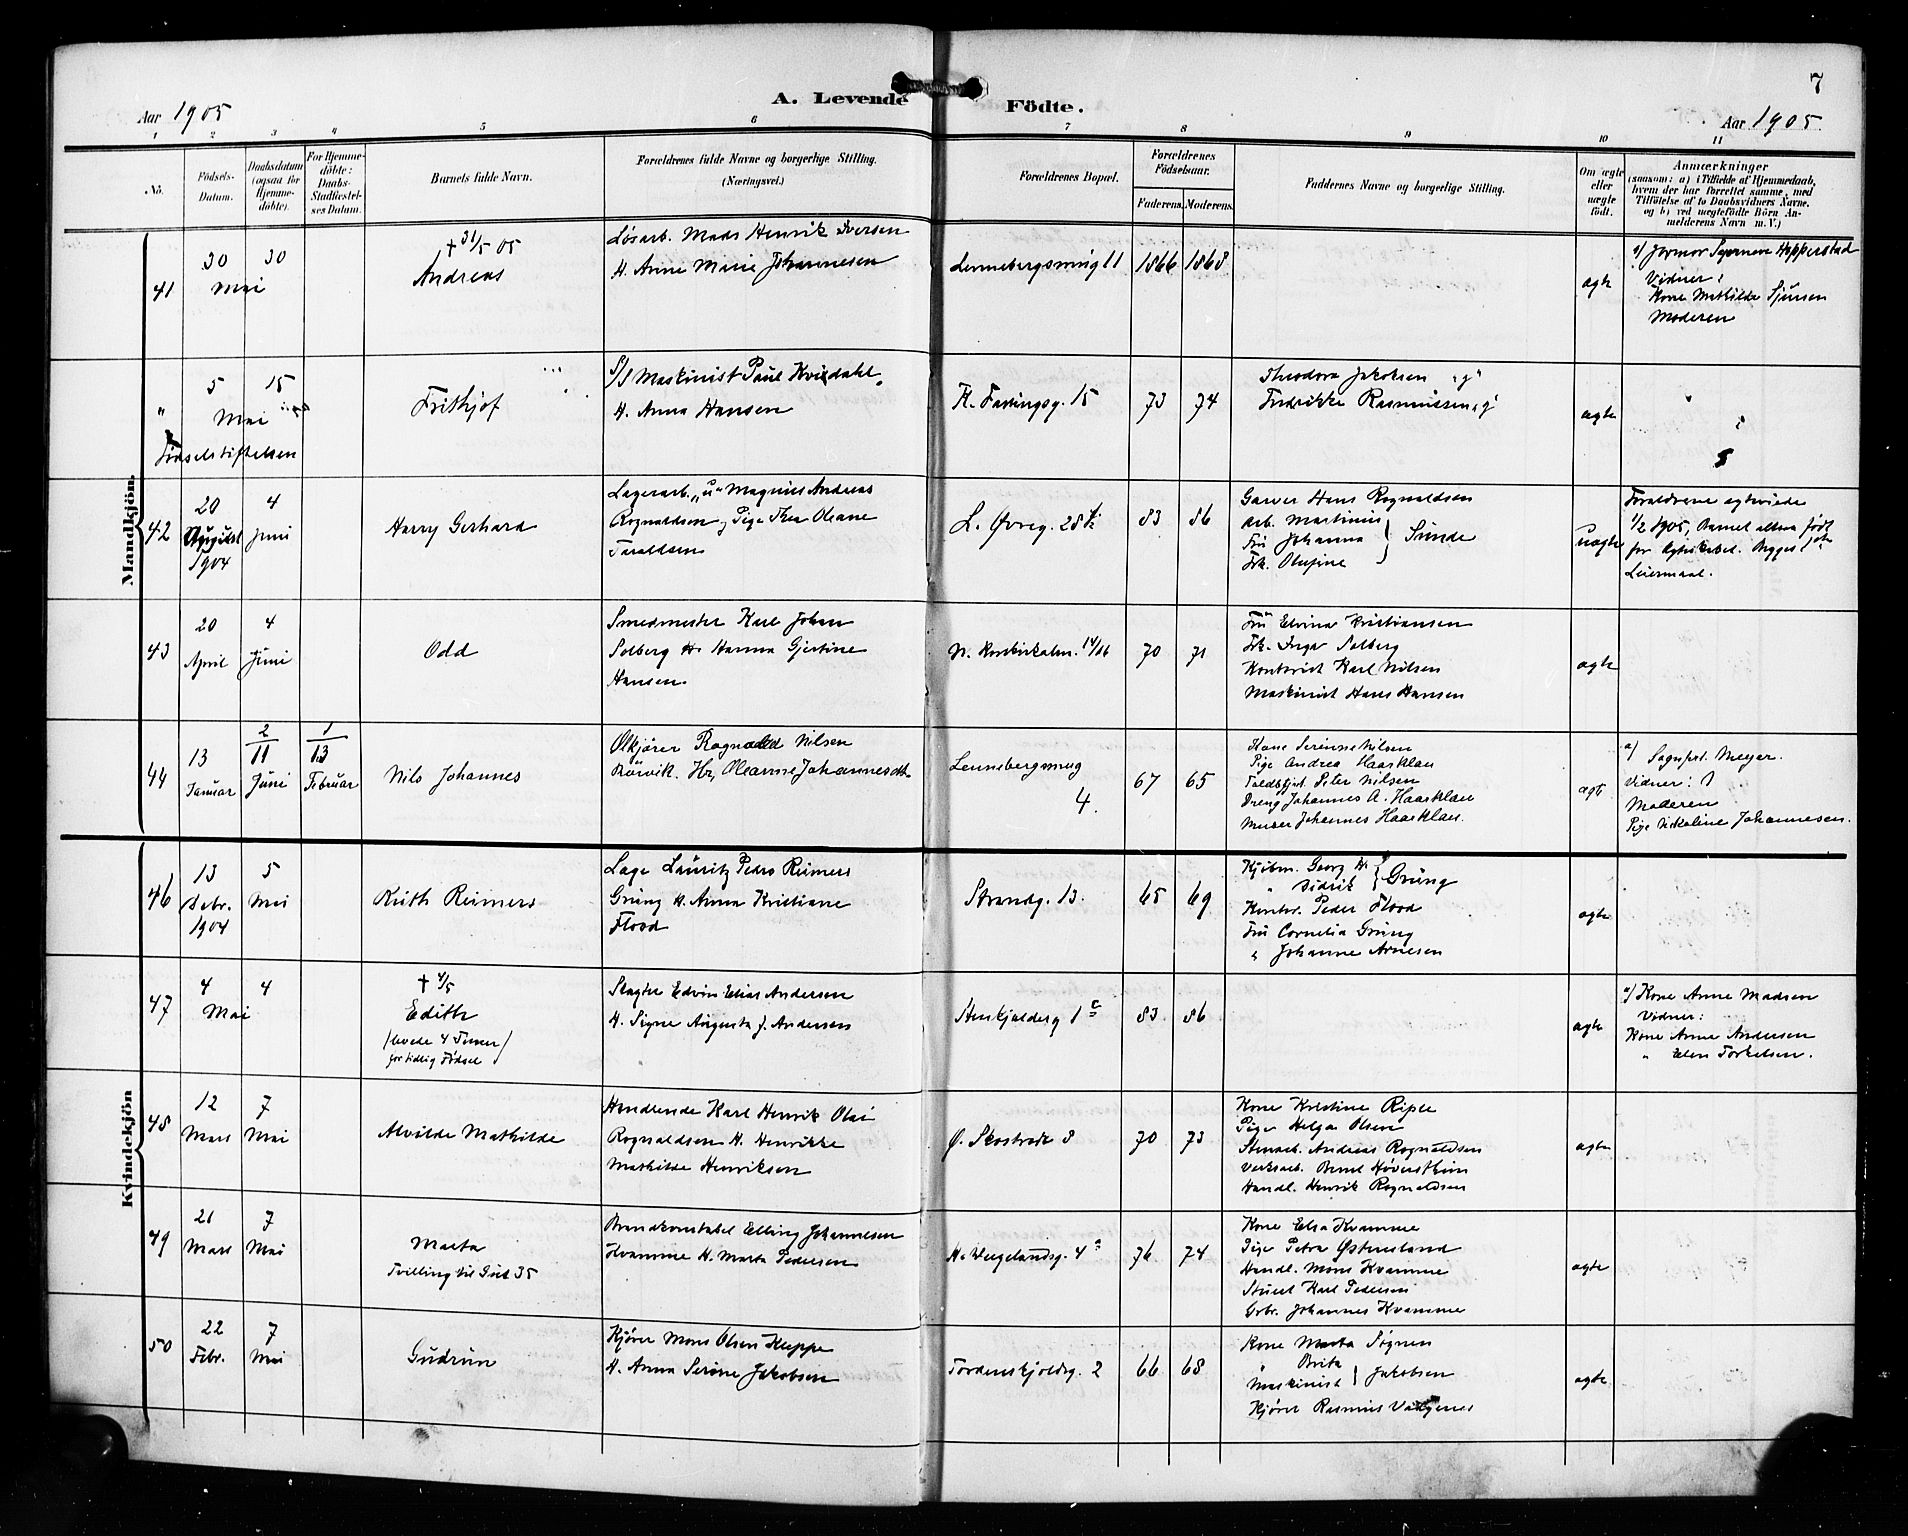 7
Aar 1905
A. Levende Födte.
Aar 1905.
1 2 3 4 5 6 7 8 9 10 11
No.
Födsels-
Datum.
Daabsdatum
(ogsaa for
Hjemme-
döbte).
For Hjemme-
döbte:
Daabs-
Stadfæstel-
ses Datum.
Barnets fulde Navn.
Forældrenes fulde Navne og borgerlige Stilling.
(Næringsvei.)
Forældrenes Bopæl.
Forældrenes
Födselsaar.
Faderens. Moderens.
Faddernes Navne og borgerlige Stilling.
Om ægte
eller
uægte
födt.
Anmærkninger
(saasom: a) i Tilfælde af Hjemmedaab,
hvem der har forrettet samme, med
Tilföielse af to Daabsvidners Navne,
og b) ved uægtefödte Börn An-
melderens Navn m. V.)
Mandkjön.
41
30 30
Mai
+ 31/5 05
Andreas
Løsarb. Mads Henrik Iversen
H. Anne Marie Johannesen
Lennebergsmug 11
1866 1868
ægte
a) Jormor Hopperstad
Vidner:
Kone Mathilde Sjursen
Moderen
"
5 15
Mai
Fødselstiftelsen
Frithjof
S/S Maskinist Paul Kvidahl
H. Anna Hansen
K. Fastingsg. 15
73 74
Theodora Jakobsen "g"
Fredrikke Rasmussen "g"
ægte
42
20 4
August Juni
1904
Harry Gerhard
Lagerarb. "u" Magnus Andreas
Rognaldsen, Pige Thea Oleane
Taraldsen
L. Øvreg. 28
83 86
Garver Hans Rognaldsen
Arb. Martinus
Fru Johanna } Sunde
Frk. Olufine
uægte
Forældrene egteviede
1/2 1905, Barnet altsaa født
før Egteskabet. Begges 1ste
Leiermaal.
43
20 4
April Juni
Odd
Smedmester Karl Johan
Solberg H. Hanna Gjertine
Hansen.
N. Korskirkealm. 14/16
70 71
Fru Elvina Kristiansen
Frk. Inga Solberg
Kontorist Karl Nilsen
Maskinist Hans Hansen
ægte
44
13
Januar
2
11
Juni
1
13
Februar
Nils Johannes
Ølkjører Rognald Nilsen
Rörvik. H. Oleanne Johannesdtr.
Lennebergsmug
4.
67 65
Kone Serinne Nilsen
Pige Andrea Haarklau
Peter Nilsen
Dreng Johannes A. Haarklau
Murer Johannes Haarklau.
ægte
a) Sognprst. Meyer.
Vidner:
Moderen
Pige Nikoline Johannesen.
Kvindekjön
46
13 5
Debr. Mai
1904
Ruth Reimers
Læge Lauritz Pedro Reimers
Grung H. Anna Kristiane
Flood
Strandg. 13.
65 69
Kjøbm. Georg H. } Grung
" Didrik
Kontor. Peder Flood
Fru Cornelia Grung
" Johanne Arnesen
ægte
47
4 4
Mai
+ 4/5
Edith
(levede 4 Timer)
for tidlig Fødsel
Slagter Edvin Elias Andersen
H. Signe Augusta J. Andersen
83. 86
ægte
a) Kone Anne Madsen
Vidner:
Kone Anne Andersen
" Elen Torkelsen.
48
12 7
Mars Mai
Alvilde Mathilde
Handlende Karl Henrik Olai
Rognaldsen H. Henrikke
Mathilde Henriksen
Ø. Skostræde 8
70 73
Kone Kristine Riple
Pige Helga Olsen
Stenarb. Andreas Rognaldsen
Verksarb. Bernt Høversthein
Handl. Henrik Rognaldsen
ægte
49
21 7
Mars Mai
Marta
Tvilling til Gut 35
Brandkonstabel Elling Johannesen
Kvamme H. Marta Pedersen
H. Wergelandsg. 4 a
76 74
Kone Elsa Kvamme
Pige Petra Østensland
Handl. Mons Kvamme
Stuert Karl Pedersen
Grbr. Johannes Kvamme
ægte
50
22 7
Febr. Mai
Gudrun
Kjører Mons Olsen Kleppe
H. Anna Serine Jakobsen
Tordenskjoldsg. 2
66 68
Kone Marta Signen
" Brita } Jakobsen
Maskinist
Kjører Rasmus
ægte